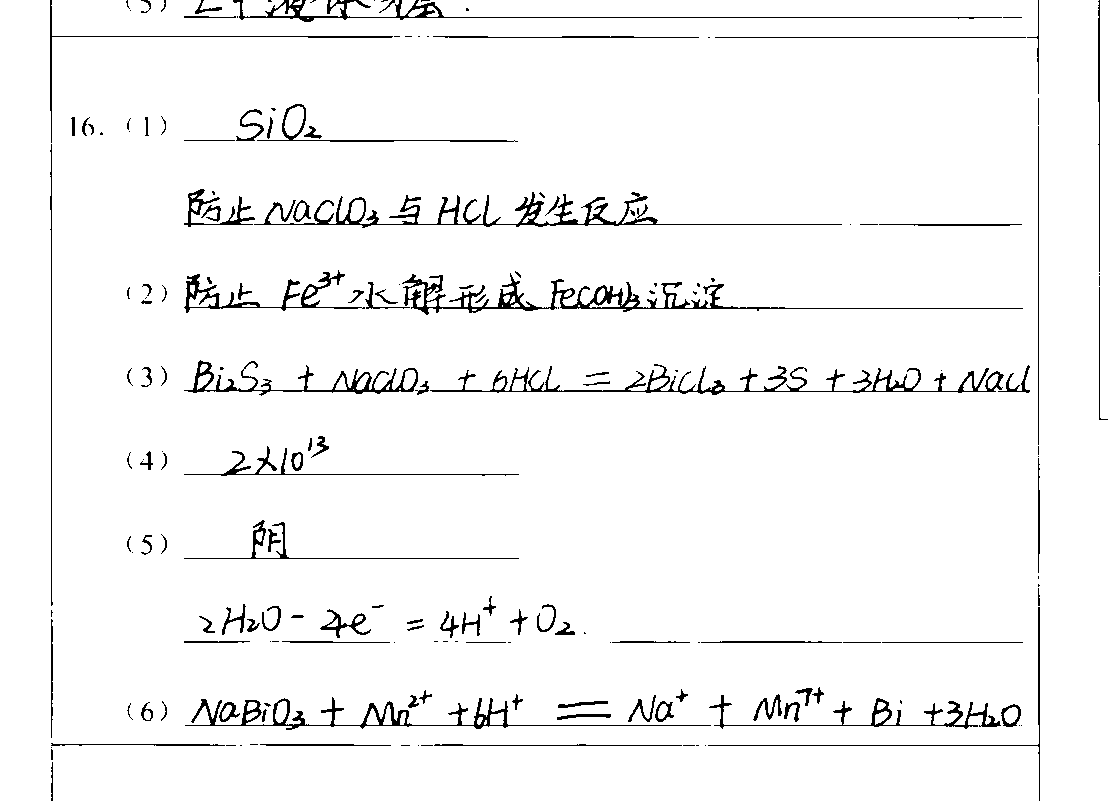 (3) 2个液体分层.
16. (1) SiO₂
防止NaClO₃与HCl发生反应
(2) 防止Fe³⁺水解形成Fe(OH)₃沉淀
(3) Bi₂S₃ + NaClO₃ + 6HCl = 2BiCl₃ + 3S + 3H₂O + NaCl
(4) 2×10¹³
(5) 阴
2H₂O - 4e⁻ = 4H⁺ + O₂.
(6) NaBiO₃ + Mn²⁺ + 6H⁺ = Na⁺ + Mn⁷⁺ + Bi + 3H₂O